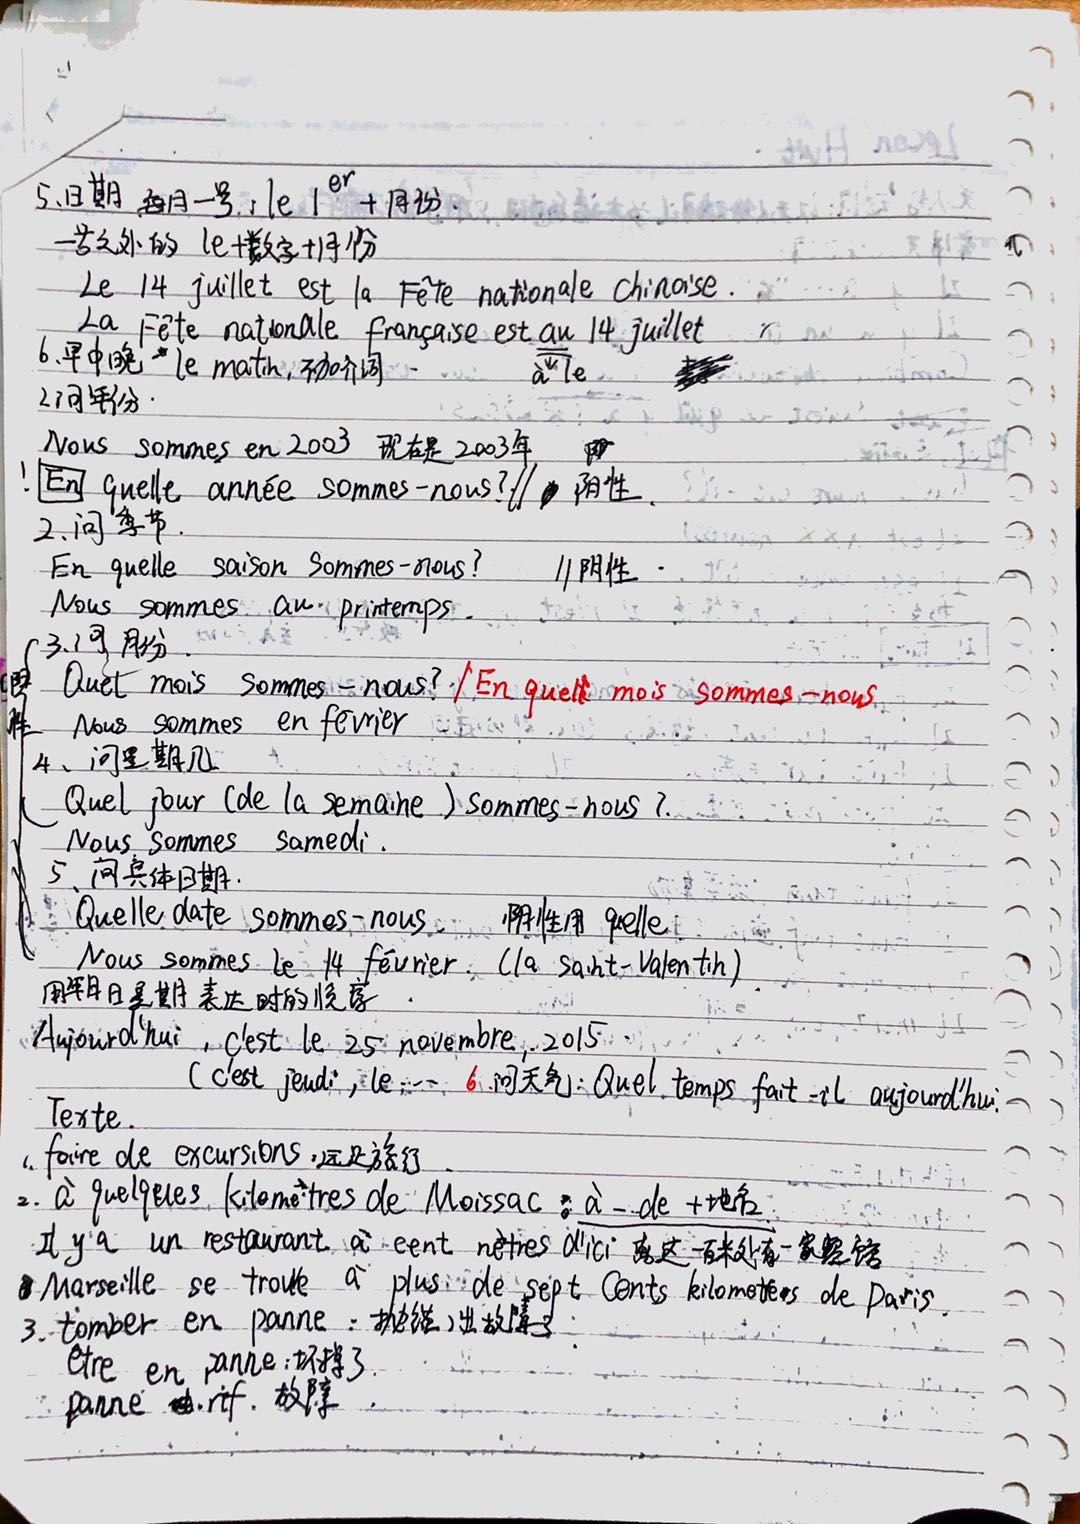 5.日期 每月一号：le 1er + 月份.
一号之外的 le+数字+月份
Le 14 juillet est la Fête nationale chinoise.
La Fête nationale française est au 14 juillet
6.早中晚 le matin, 不加介词
à le
1.问年份.
Nous sommes en 2003 现在是2003年
! En quelle année sommes-nous? // 阴性.
2.问季节.
En quelle saison sommes-nous? // 阴性.
Nous sommes au printemps.
3.问月份.
Quel mois sommes-nous? / En quel mois sommes-nous
性 Nous sommes en février
4、问星期几
Quel jour (de la semaine) sommes-nous?.
Nous sommes samedi.
5、问具体日期.
Quelle date sommes-nous. 阴性用 quelle.
Nous sommes le 14 février. (la saint-Valentin).
用年月日星期表达时的顺序.
Aujourd'hui, c'est le 25 novembre, 2015.
(c'est jeudi, le... 6.问天气: Quel temps fait-il aujourd'hui.
Texte.
1. faire de excursions.远足旅行.
2. à quelqeles kilomètres de Moissac: à - de +地名.
Il y a un restaurant à cent nètres d'ici 离这一百米处有一家
Marseille se trouve à plus de sept cents kilometers de Paris.
3. tomber en panne: 出故障了.
être en panne: 坏掉了.
panne n.f. 故障.